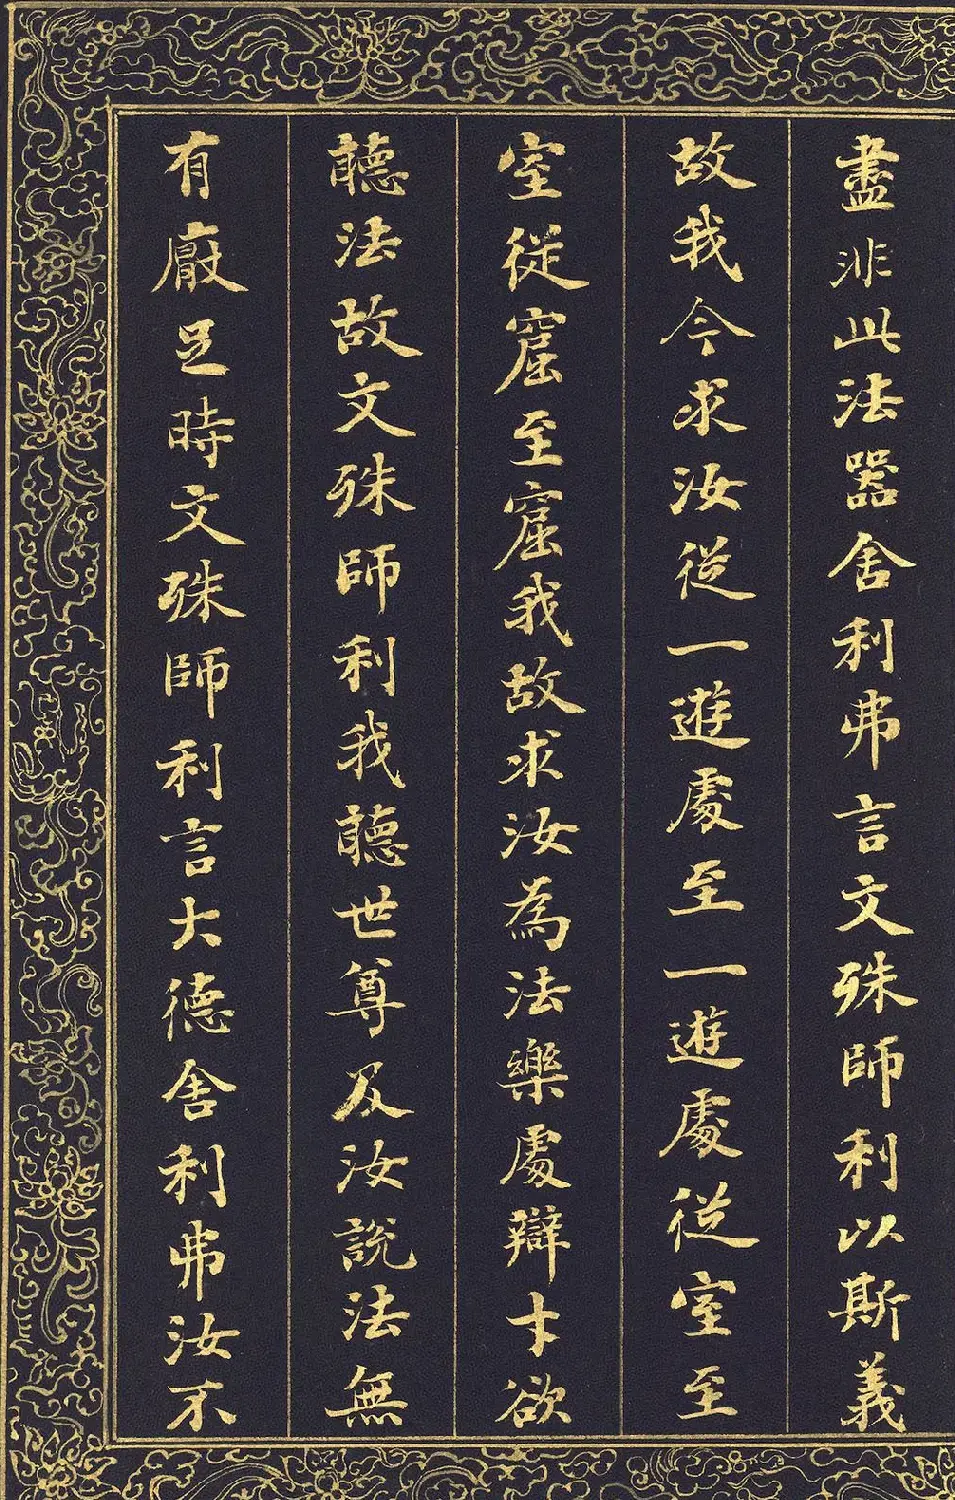 盡非此法器舍利弗言文殊師利以斯義
故我今求汝從一遊處至一遊處從室至
室從窟至窟我故求汝為法樂處辯才欲
聽法故文殊師利我聽世尊及汝說法無
有厰足時文殊師利言大德舍利弗汝不